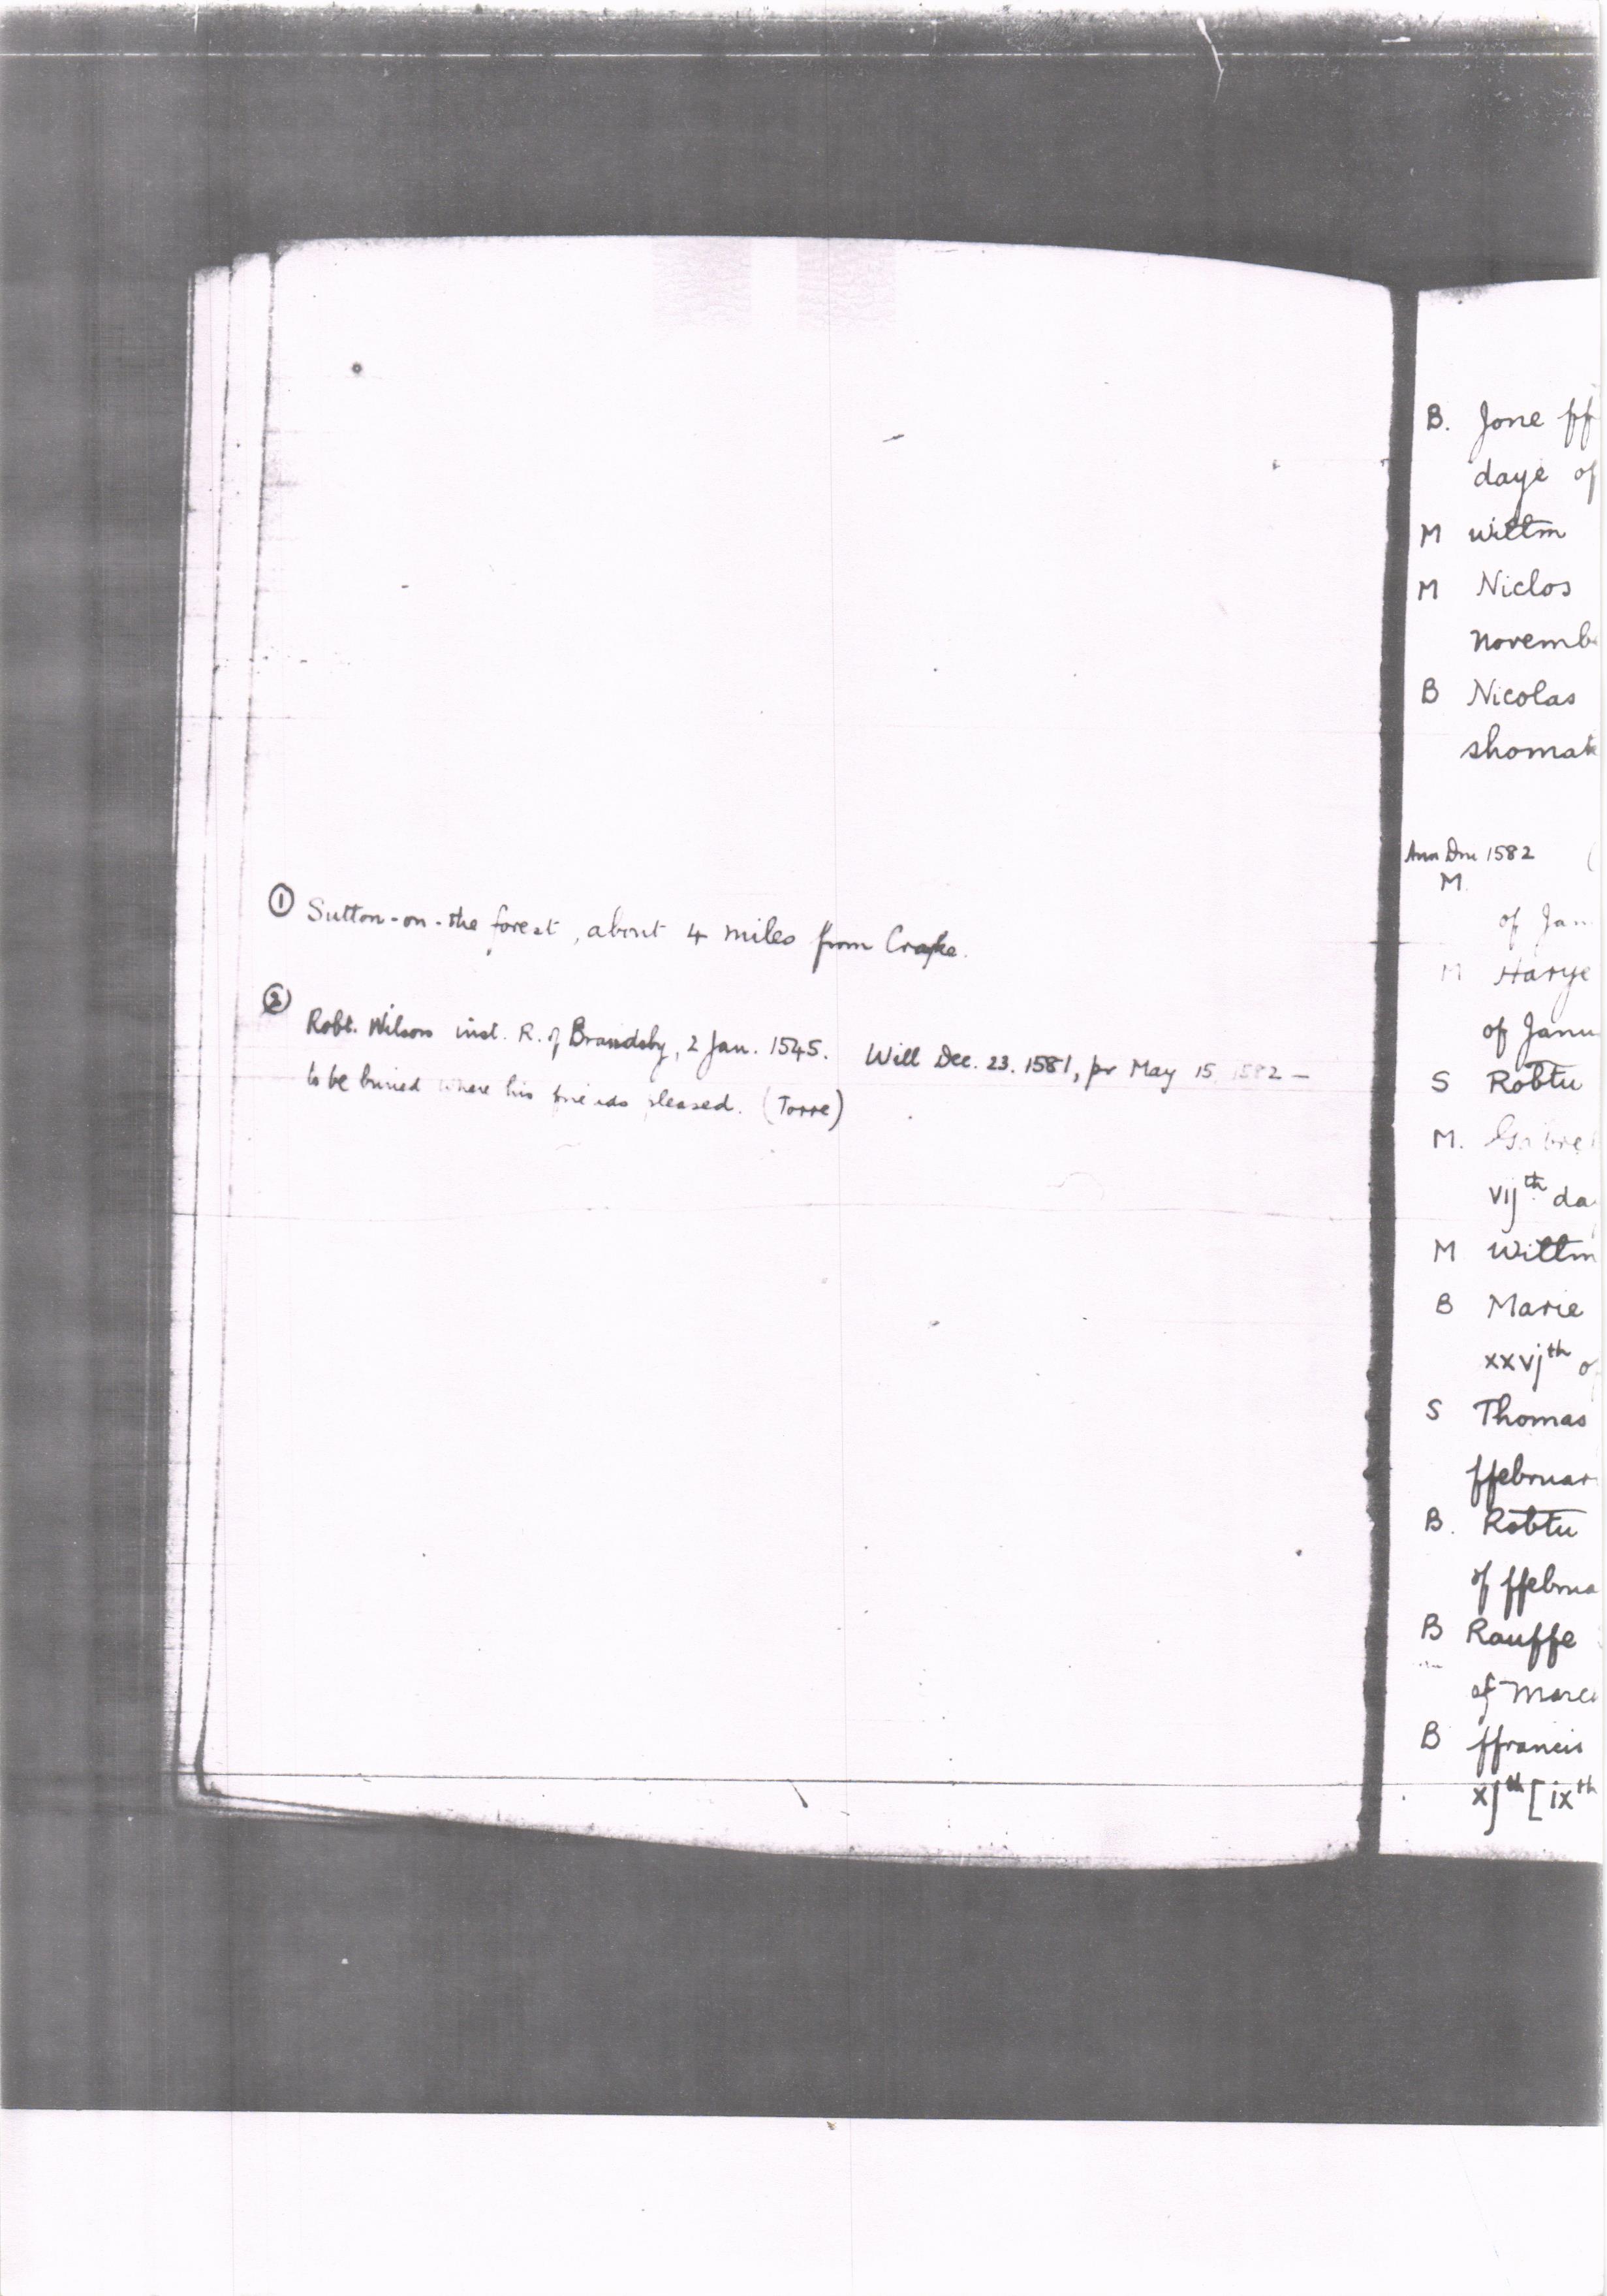 ① Sutton-on-the forest, about 4 miles from Crayke.
② Robt. Wilson inst. R. of Brandsby, 2 Jan. 1545. Will Dec. 23. 1581, pr May 15 1582 —
to be buried where his friends pleased. (Torre)
B. Jone ff
daye of
M Willm
M Niclos
Novemb
B Nicolas
shomak
Ann Dm 1582 (
M.
of Jan
M Harye
of Janu
S Robtu
M. Gabre
vijth da
M Willm
B Marie
xxvjth o
S Thomas
ffebruar
B. Robtu
of ffebrua
B Rauffe
of Marc
B ffrancis
xjth [ixth